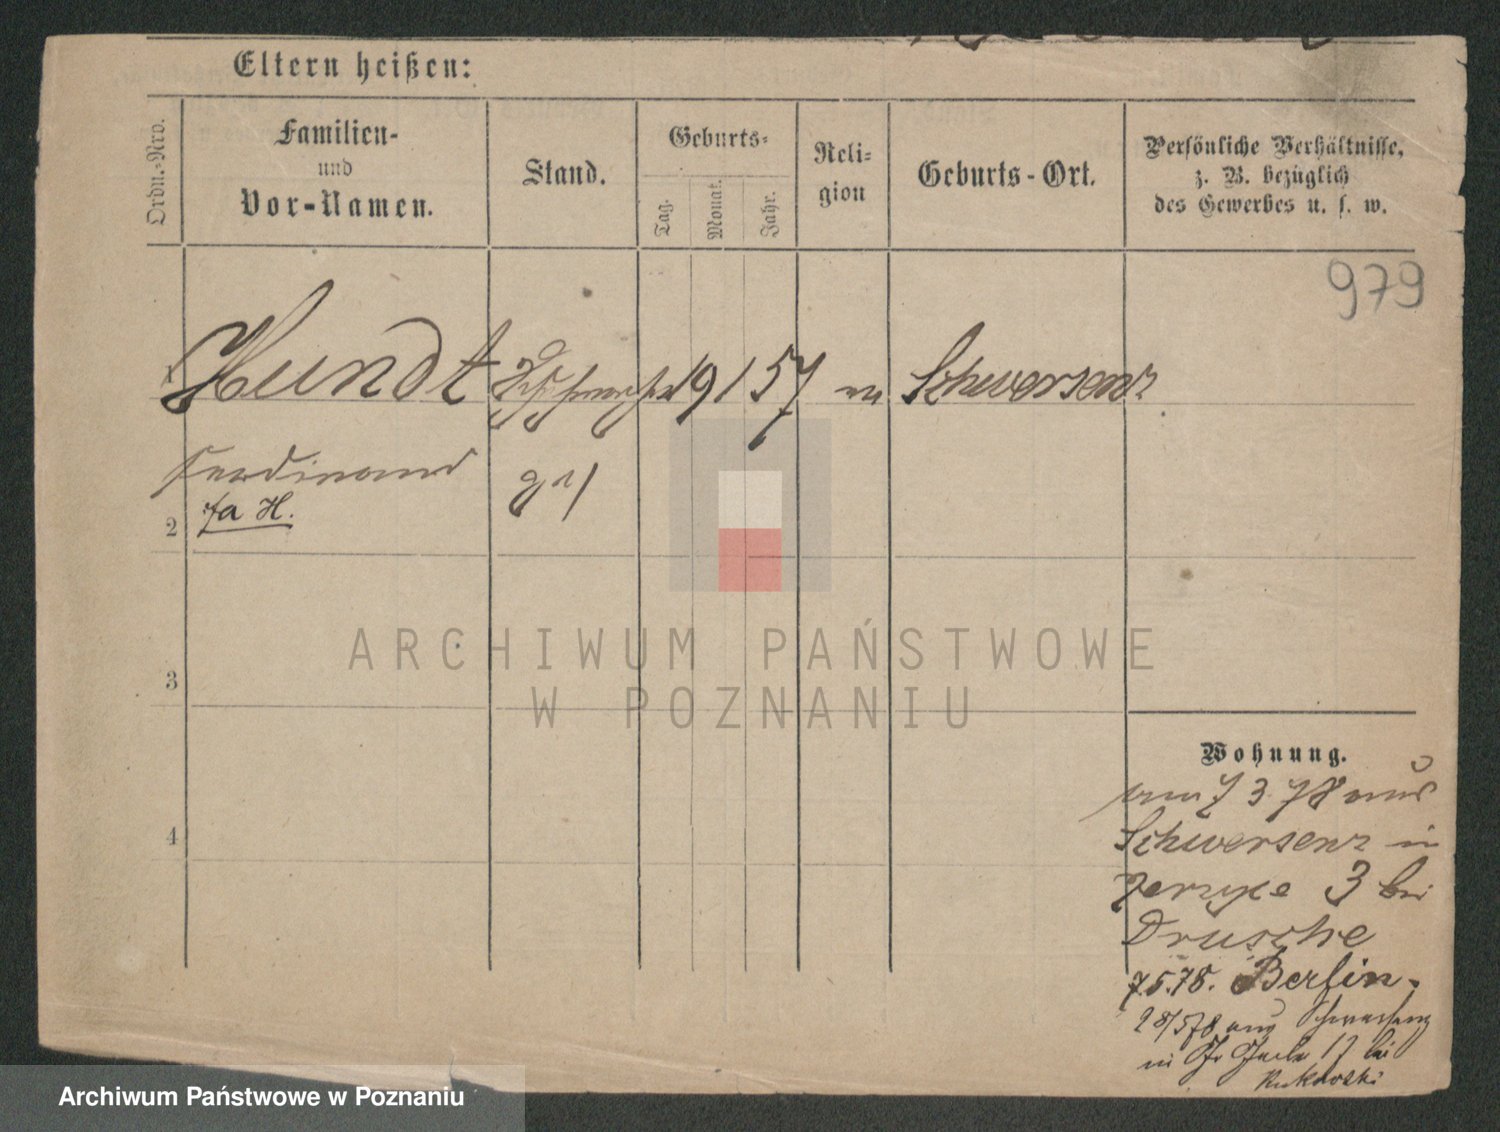 Eltern heißen:
Ordn.-Nro.
Familien-
und
Vor-Namen.
Stand.
Geburts-
Tag.
Monat.
Jahr.
Reli-
gion
Geburts-Ort.
Persönliche Verhältnisse,
z. B. bezüglich
des Gewerbes u. s. w.
979
1 Hundt 19 1 57 Schwersenz
Ferdinand
fa H.
2
3
4
ARCHIWUM PAŃSTWOWE
W POZNANIU
Wohnung.
3 78 aus
Schwersenz in
3 bei
Drusche
7.5.78. Berlin.
28/5 78 aus Schwersenz
in 17 bei
Rukowski
Archiwum Państwowe w Poznaniu